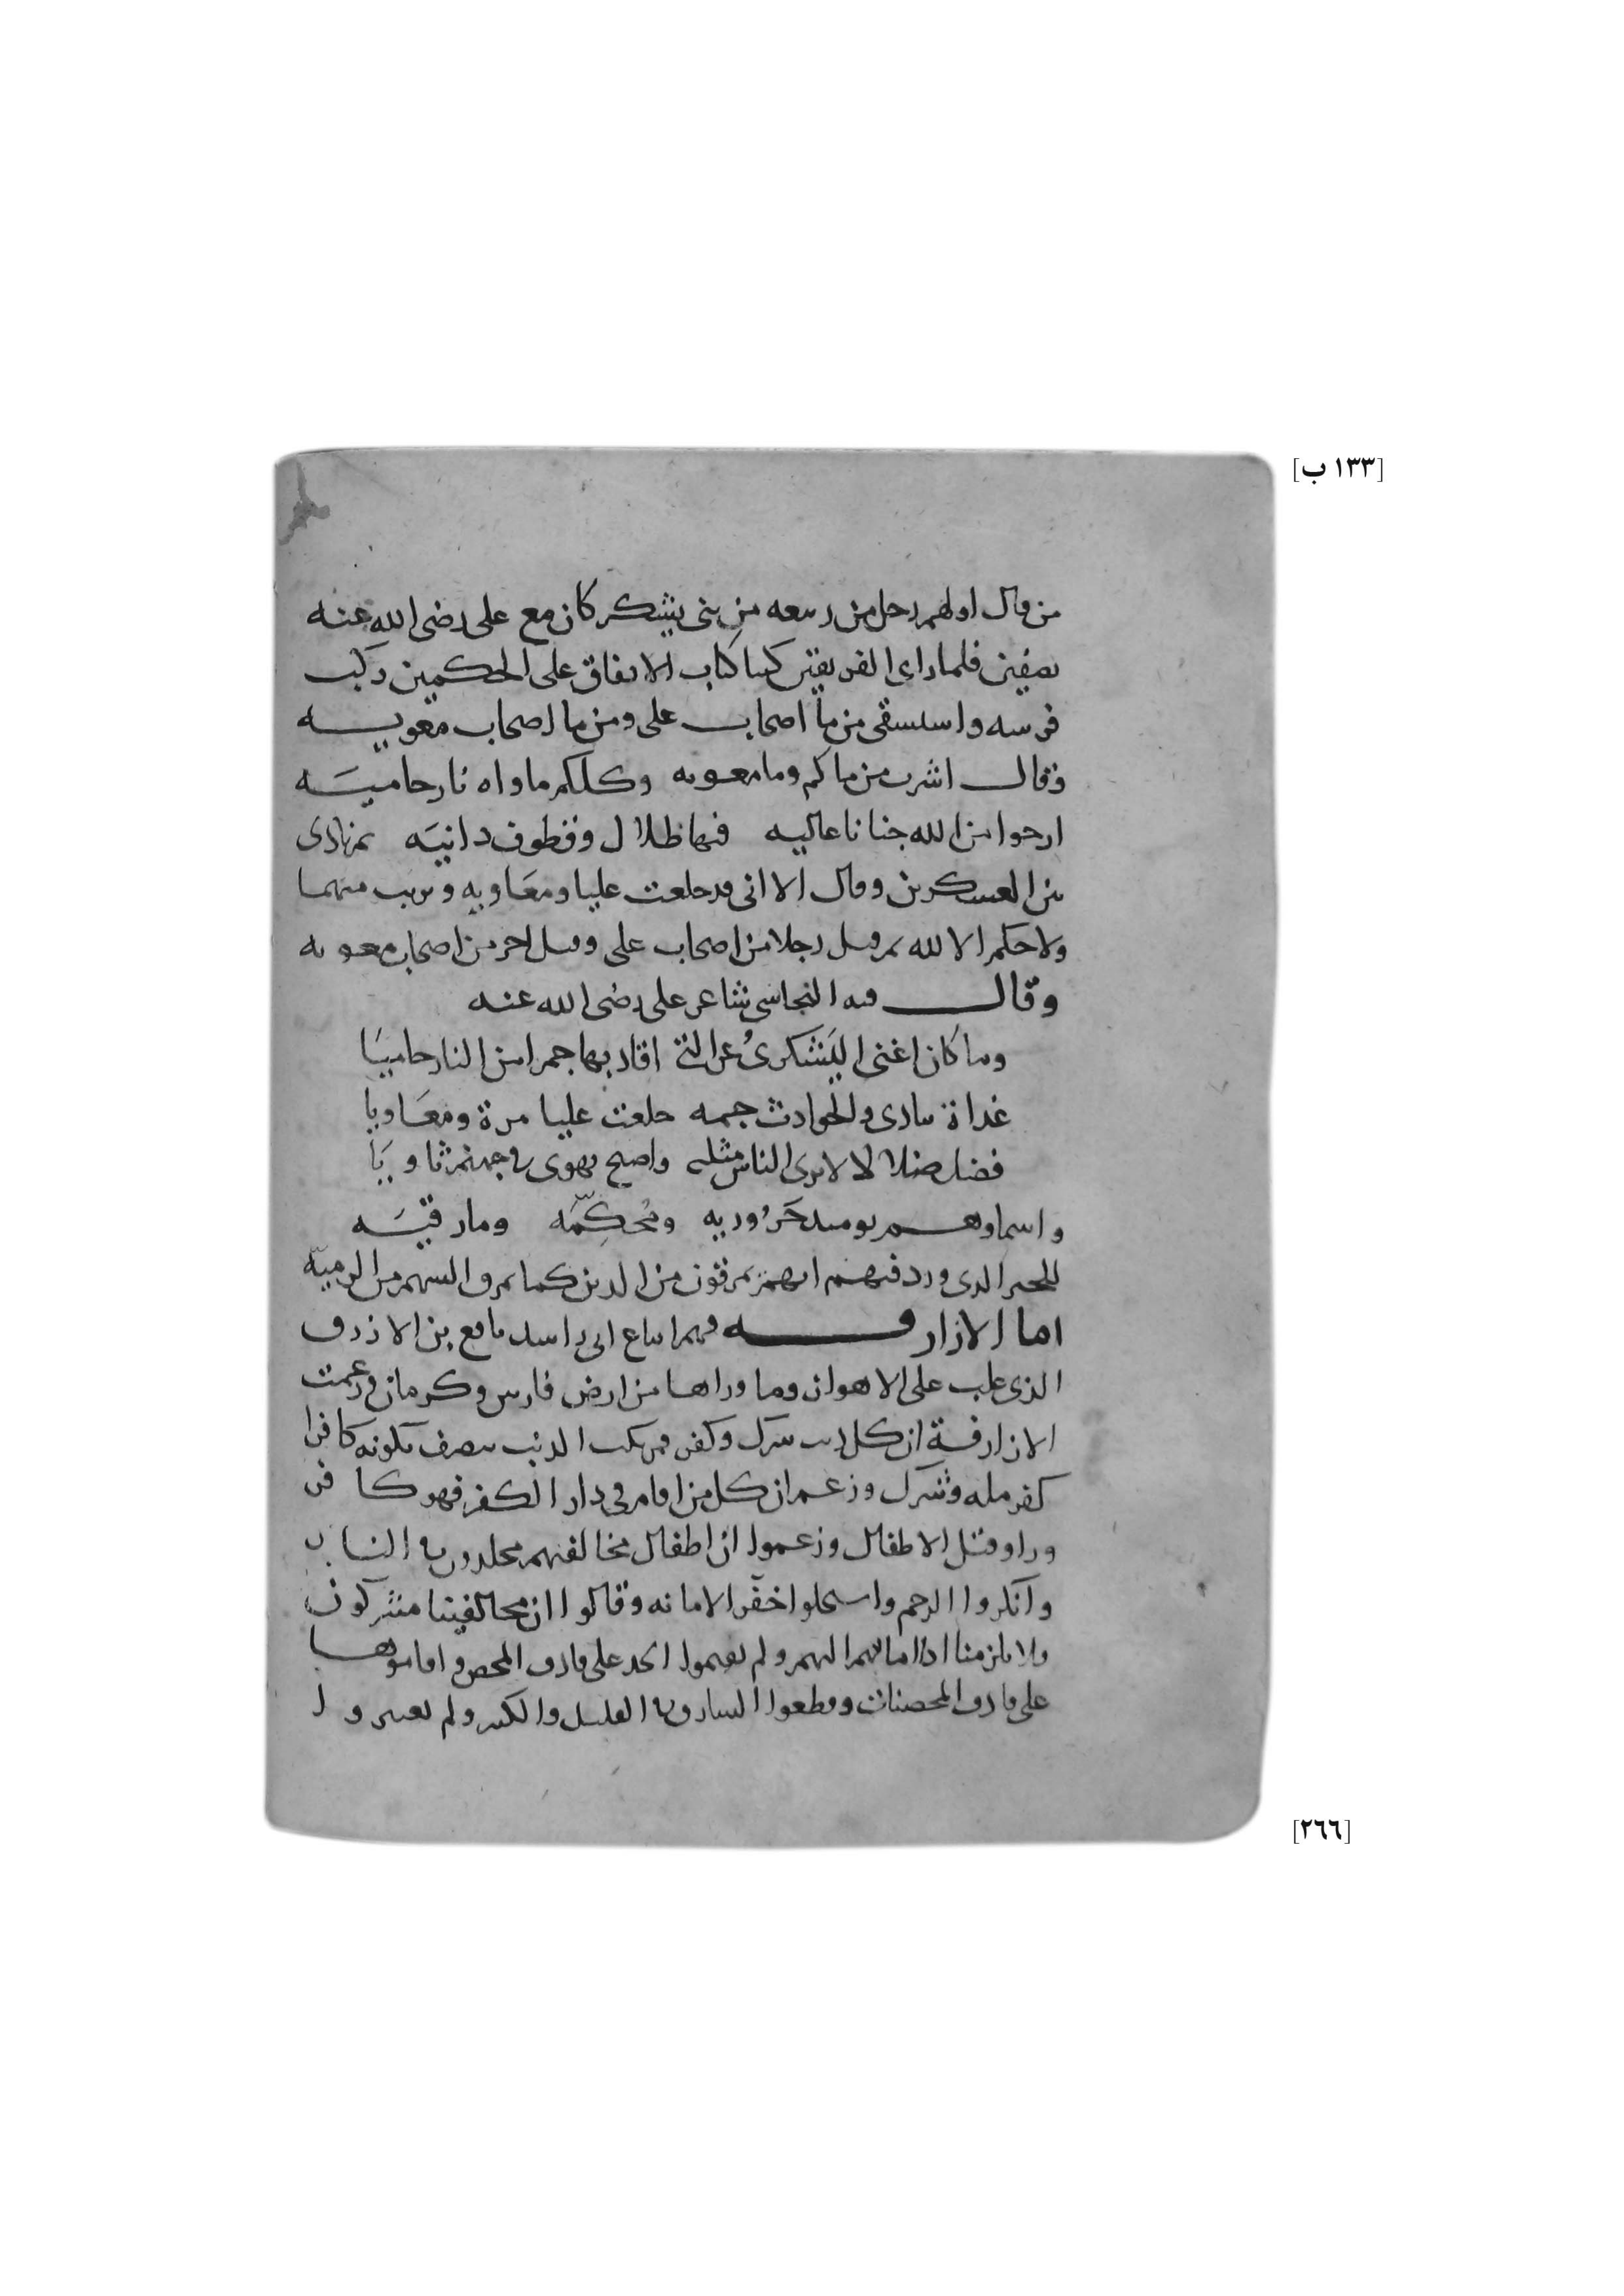 [١٣٣ ب]
من قال اولهم رجل من ربيعه من بنى يشكر كان مع على رضى الله عنه
بصفين فلما راى الفريقين كتبا كتاب الاتفاق على الحكمين ركب
فرسه واستسقى من ما اصحاب على ومن ما اصحاب معويه
وقال اشرب من ماكم وما معويه وكلكم ماواه نار حاميه
ارجوا من الله جنانا عاليه فيها ظلال وقطوف دانيه ثم نادى
بين العسكرين وقال الا انى قد خلعت عليا ومعاويه وبريت منهما
ولا حكم الا لله ثم قتل رجلا من اصحاب على وقتل اخر من اصحاب معويه
وقال فيه النجاشى شاعر على رضى الله عنه
وما كان اغنى اليَشكرىُ عن التى افاد بها جمرا من النار حاميَا
غداة ينادى والحوادث جمه خلعت عليا مرة ومعَاويا
فضل ضلالا لا يرى الناس مثله واصبح يهوى فى جهنم ثاويَا
واسماوهم يوميذ حَرُوريه ومُحكِّمَه ومارقيَه
للخبر الذى ورد فيهم انهم يمرقون من الدين كما يمرق السهم من الرميّه
اما الازارقه فهم اتباع ابى راشد نافع بن الازرق
الذى غلب على الاهواز وما وراها من ارض فارس وكرمان وزعمت
الازارقة ان كل ذنب شرك وكفر فمرتكب الذنب يصرف بكونه كافرا
كفر مله وشرك وزعم ان كل من اقام فى دار الكفر فهو كافر
وراو قتل الاطفال وزعموا ان اطفال مخالفيهم مخلدون فى النار
وانكروا الرجم واستحلوا خفر الامانه وقالوا ان مخالفينا مشركون
ولا يلزمنا ادا اماناتهم اليهم ولم يقيموا الحد على قاذف المحصن واقاموها
على قاذف المحصنات وقطعوا السارق فى القليل والكثير ولم يعتبروا
[٢٦٦]